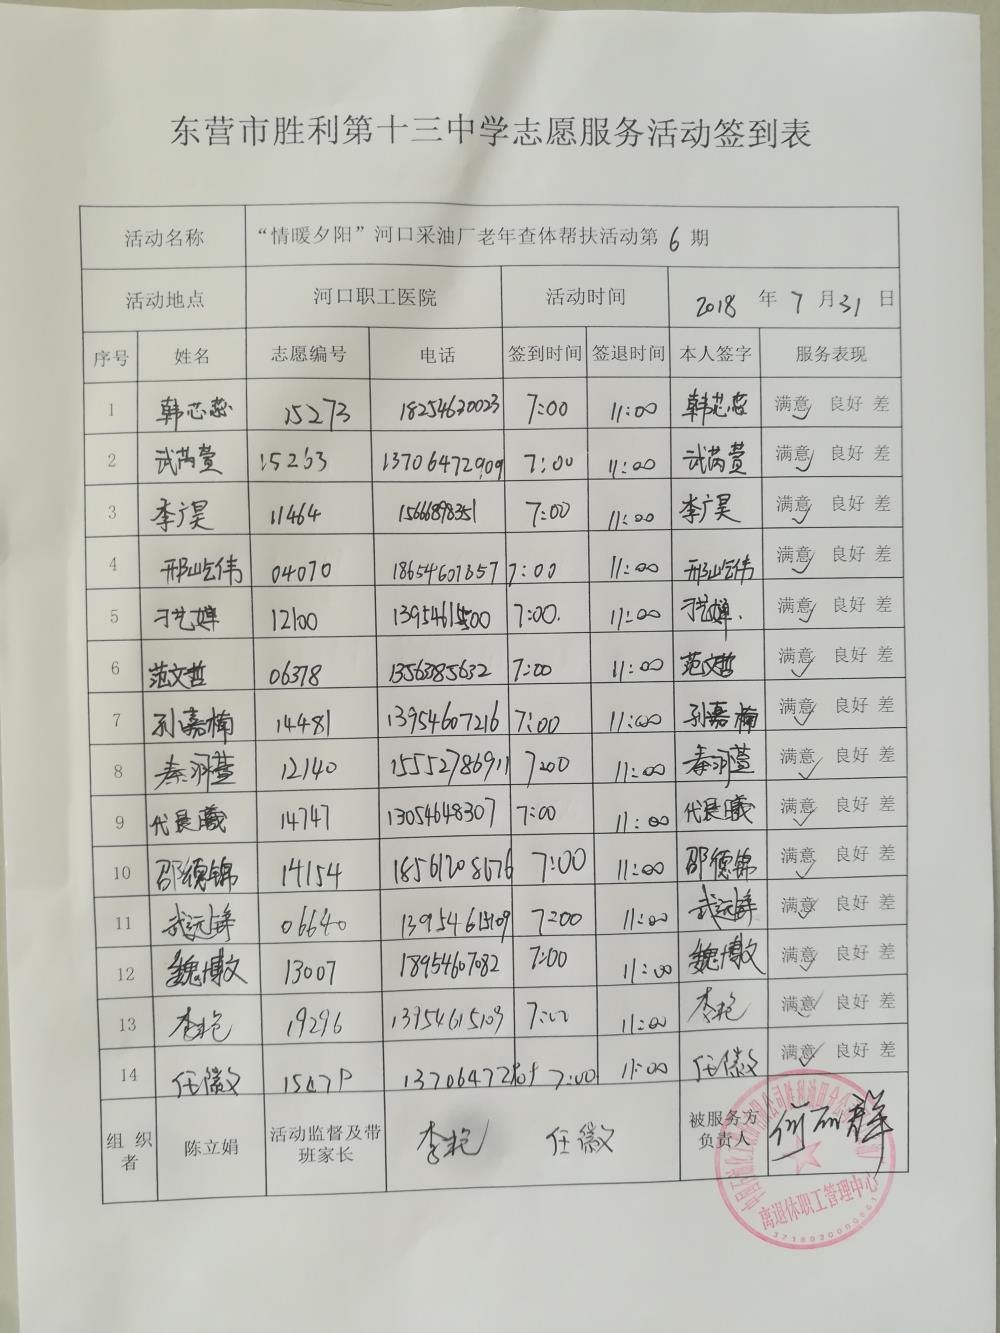 东营市胜利第十三中学志愿服务活动签到表
活动名称 “情暖夕阳”河口采油厂老年查体帮扶活动第6期
活动地点 河口职工医院 活动时间 2018年7月31日
序号 姓名 志愿编号 电话 签到时间 签退时间 本人签字 服务表现
1 韩芯蕊 15273 18254620023 7:00 11:00 韩芯蕊 满意 良好 差
2 武芮萱 15263 13706472909 7:00 11:00 武芮萱 满意 良好 差
3 李广昊 11464 15666898351 7:00 11:00 李广昊 满意 良好 差
4 邢屹伟 04070 18654607657 7:00 11:00 邢屹伟 满意 良好 差
5 刁艺婵 12100 13954615500 7:00. 11:00 刁艺婵. 满意 良好 差
6 范文哲 06378 13563385632 7:00 11:00 范文哲 满意 良好 差
7 孙嘉楠 14481 13954607216 7:00 11:00 孙嘉楠 满意 良好 差
8 秦羽萱 12140 15552786911 7:00 11:00 秦羽萱 满意 良好 差
9 代晨曦 14747 13054648307 7:00 11:00 代晨曦 满意 良好 差
10 邵德锦 14154 18561208676 7:00 11:00 邵德锦 满意 良好 差
11 武远 06640 13954615109 7:00 11:00 武远 满意 良好 差
12 魏博文 13007 18954607082 7:00 11:00 魏博文 满意 良好 差
13 李艳 19296 13954615109 7:00 11:00 李艳 满意 良好 差
14 任徽文 13706472909 7:00 11:00 任徽文 满意 良好 差
组织者 陈立娟 活动监督及带班家长 李艳 任徽文 被服务方负责人
离退休职工管理中心